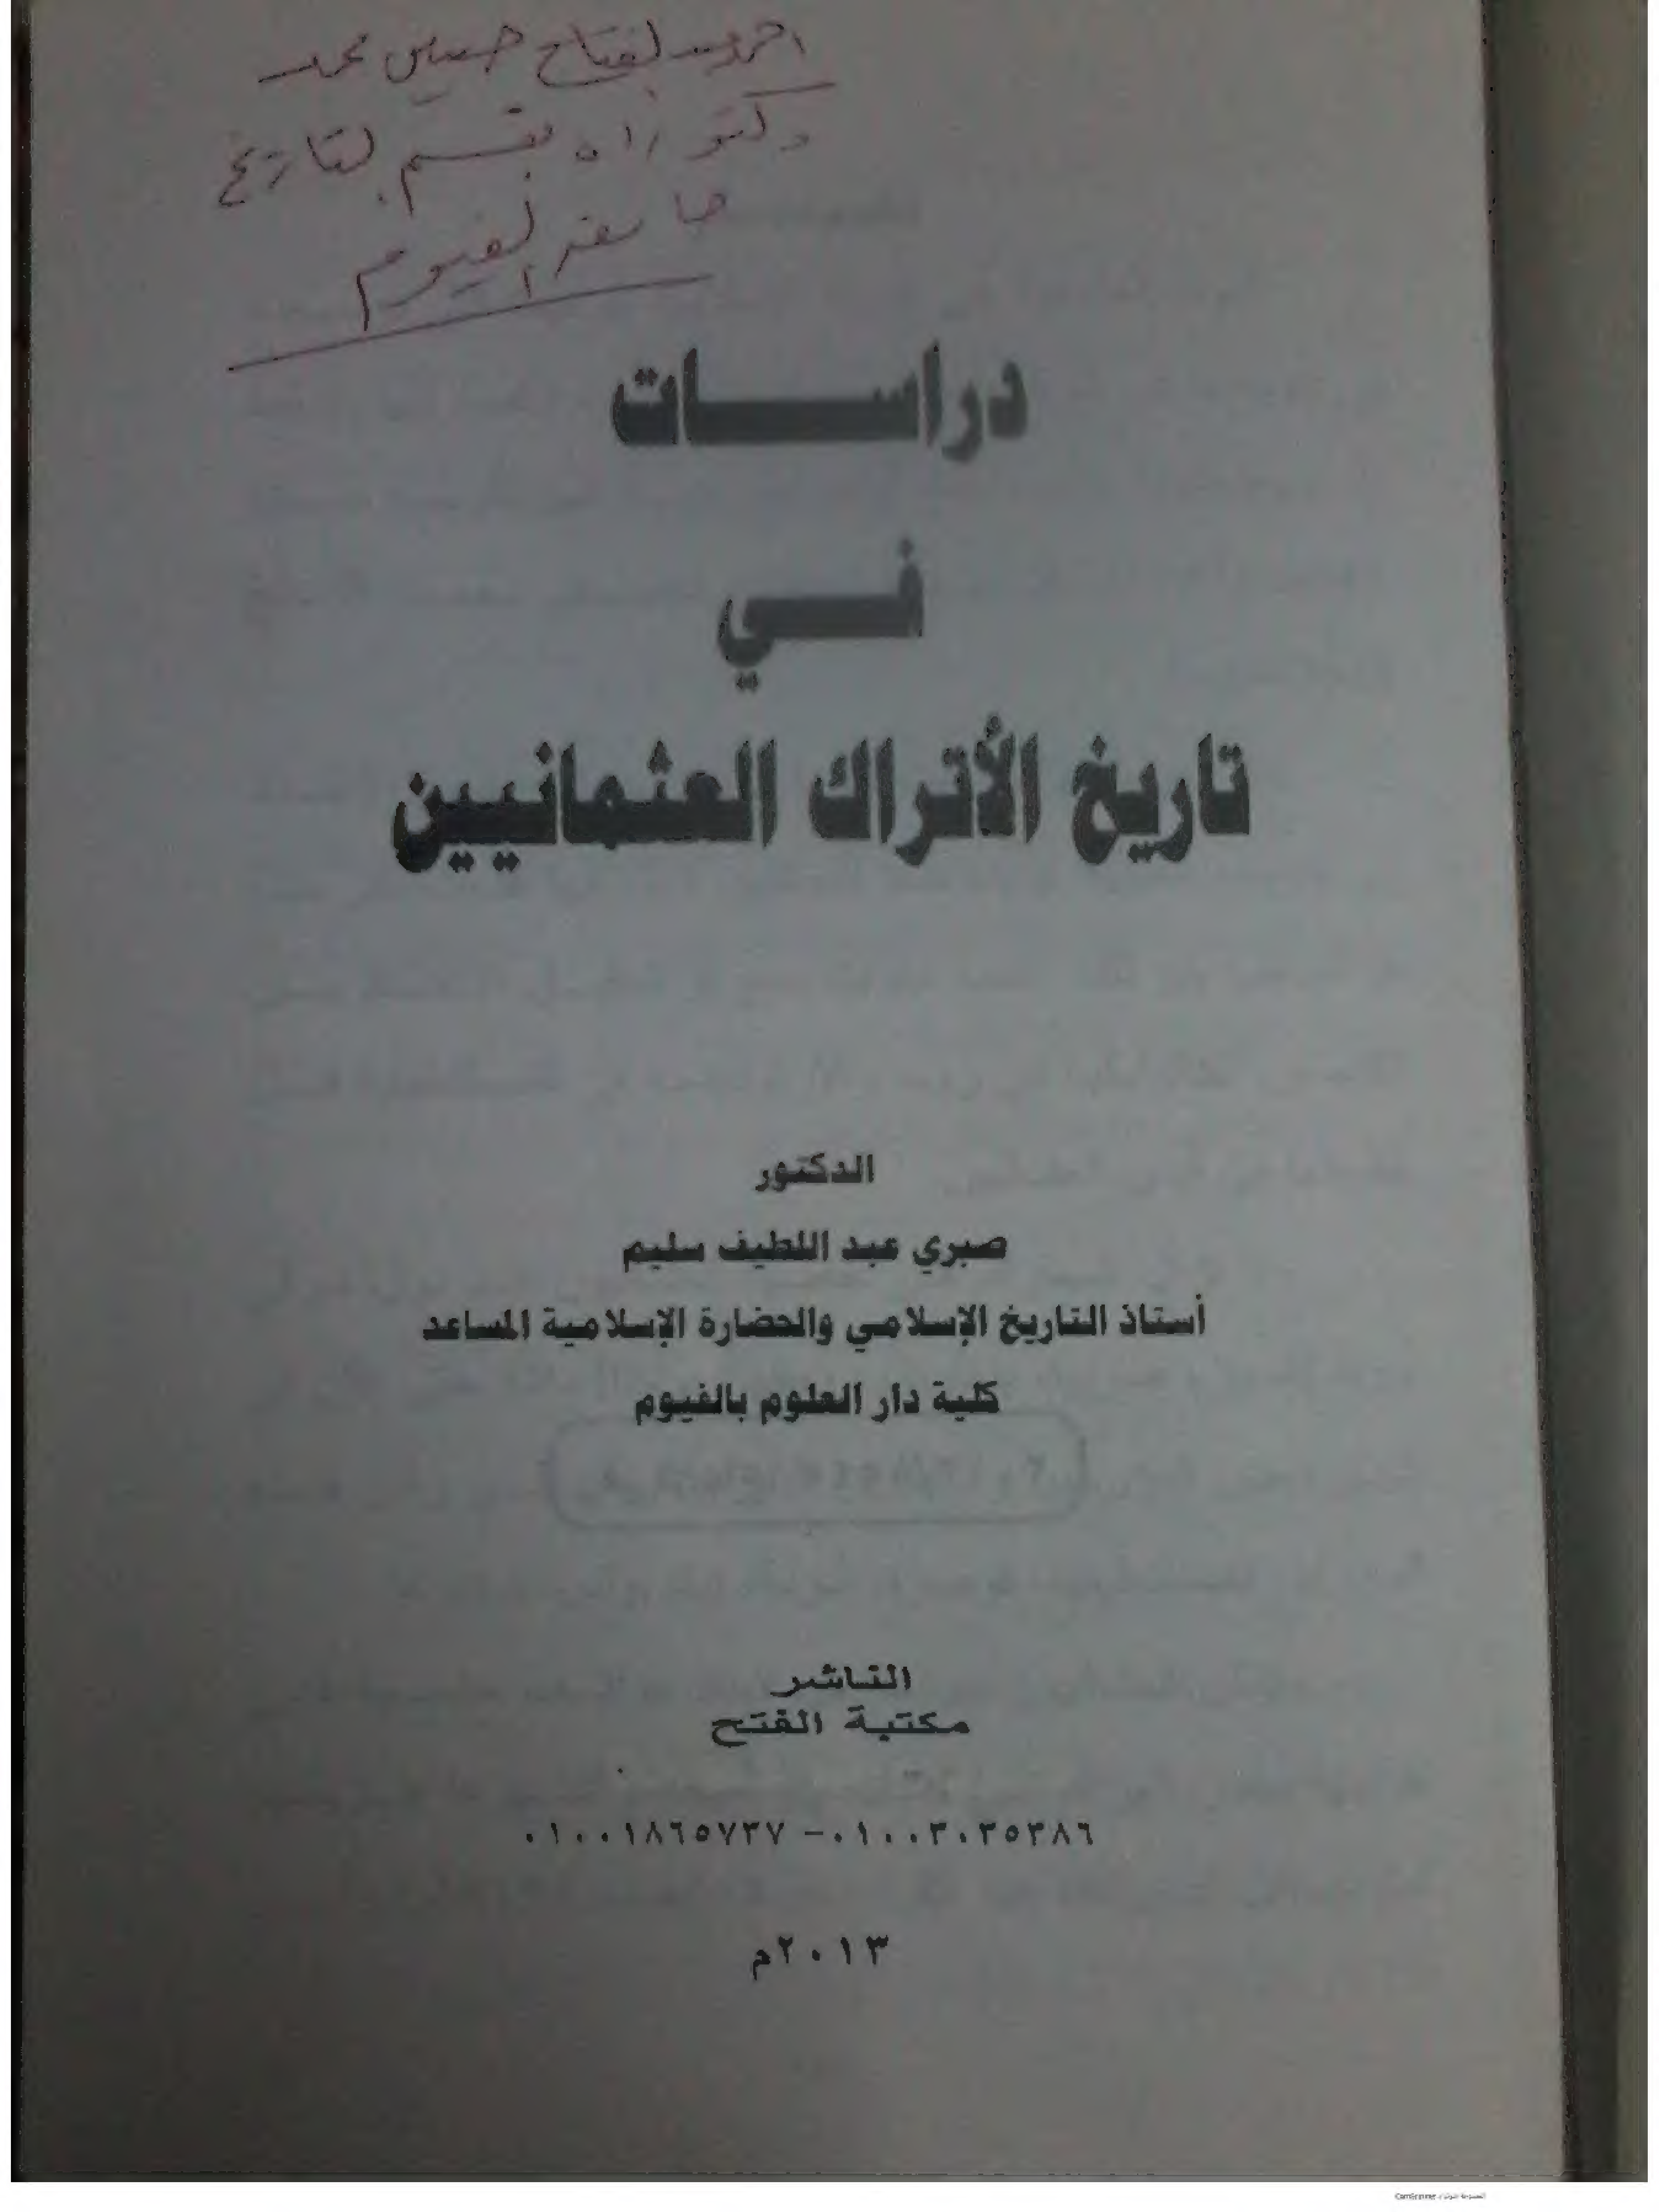 احمد عبد الفتاح حسين محمد
دكتوراه بقسم التاريخ
جامعة الفيوم
دراسات
في
تاريخ الأتراك العثمانيين
الدكتور
صبري عبد اللطيف سليم
أستاذ التاريخ الإسلامي والحضارة الإسلامية المساعد
كلية دار العلوم بالفيوم
الناشر
مكتبة الفتح
٠١٠٠١٨٦٥٧٣٧ – ٠١٠٠٣٠٣٥٣٨٦
٢٠١٣م
CamScanner